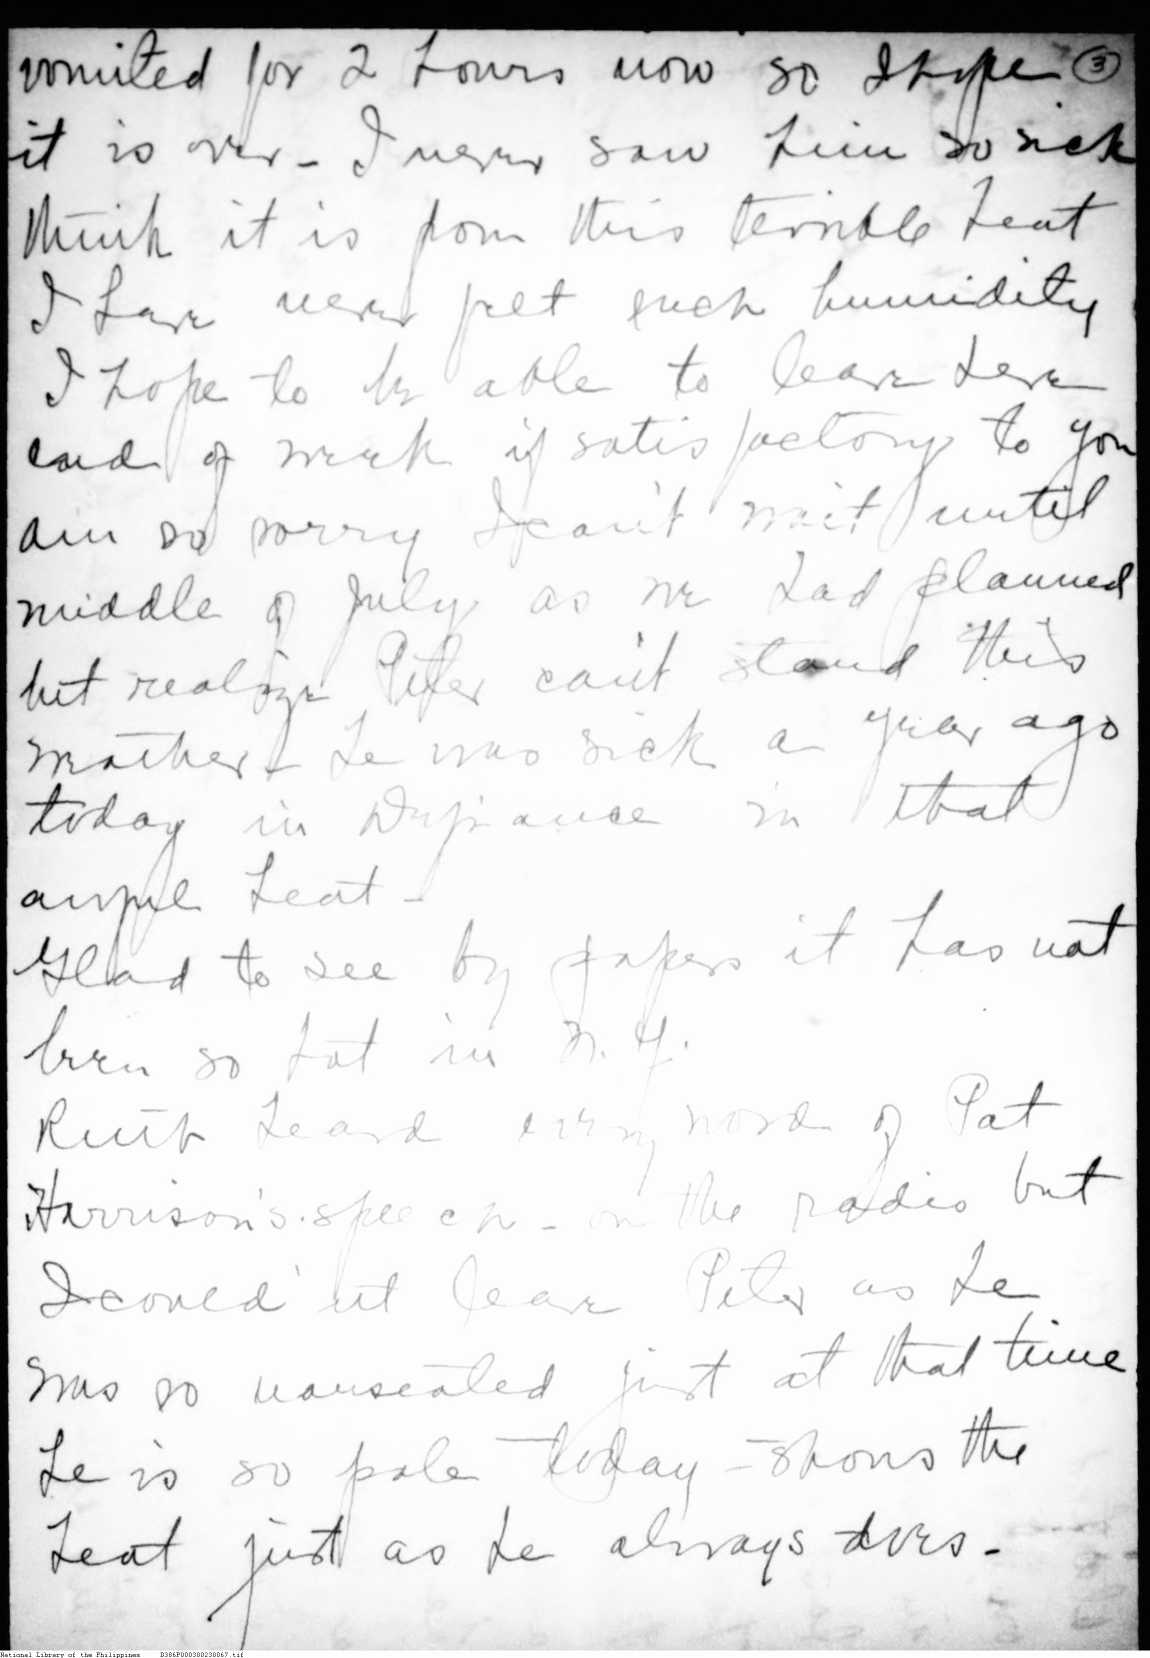 vomited for 2 hours now so I hope ③
it is over - I never saw him so sick
think it is from this terrible heat
I have never felt such humidity
I hope to be able to leave here
end of week if satisfactory to you
am so sorry I can't wait until
middle of July as we had planned
but realize Peter can't stand this
weather - he was sick a year ago
today in Defiance in that
awful heat -
Glad to see by papers it has not
been so hot in N.Y.
Ruth heard every word of Pat
Harrison's speech - on the radio but
I could'nt leave Peter as he
was so nauseated just at that time
he is so pale today - shows the
heat just as he always does -
National Library of the Philippines B386P000380238067.tif